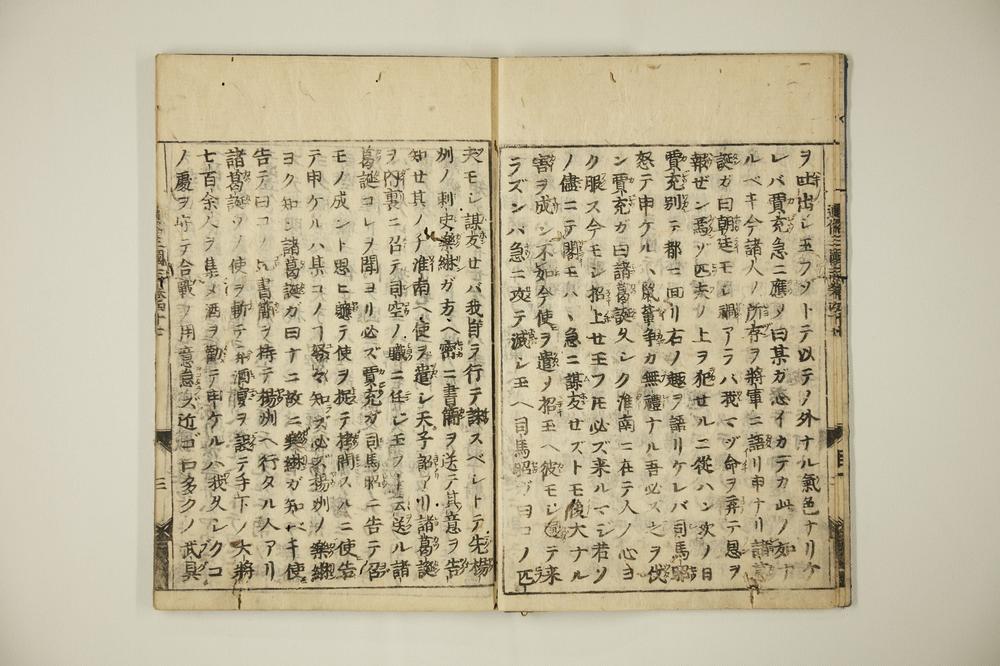 ヲ吐出シ玉フゾトテ以テノ外ナル氣色ナリケ
レバ賈充急ニ應メ曰某ガ心イカデカ此ノ如ナ
ルベキ今諸人ノ所存ヲ將軍ニ語リ申ナリ諸葛
誕ガ曰朝廷モシ禍アラバ我マヅ命ヲ弃テ恩ヲ
報ゼン焉ゾ匹夫ノ上ヲ犯セルニ從ハン次ノ日
賈充別テ都ニ回リ右ノ趣ヲ語リケレバ司馬昭
怒テ申ケルハ鼠輩争カ無禮ナル吾必ズ之ヲ伐
ン賈充ガ曰諸葛誕久シク淮南ニ在テ人ノ心ヨ
ク服ス今モシ招上セ玉フトモ必ズ来ルマジ若ソ
ノ儘ニテ閣モハヽ急ニ謀反セズトモ後大ナル
害ヲ成シ不如今使ヲ遣メ招玉ヘ彼モシ 来
ラズンバ急ニ攻テ滅シ玉ヘ司馬昭ゲヨコノ匹
夫モシ謀友セバ我自ラ行テ誅スベシトテ先揚
州ノ刺史樂綝ガ方ヘ密ニ書簡ヲ送テ其意ヲ告
知セ其ノチ淮南ヘ使ヲ遣シ天子詔アリ諸葛誕
ヲ内裏ニ召テ司空ノ職ニ任シ玉フト云送ル諸
葛誕コレヲ聞ヨリ必ズ賈充ガ司馬昭ニ告テ召
モノ成ント思ヒ 使ヲ捉テ拷問スルニ使告
テ申ケルハ某コノ 努々知ズ必ズ揚州ノ樂綝
ヨク知ン諸葛誕ガ曰ナニ故ニ樂綝ガ知ベキ使
告テ曰コノ 書簡ヲ持テ揚州ヘ行タル人アリ
諸葛誕ソノ使ヲ斬テ 酒宴ヲ設テ手下ノ大將
七百余人ヲ集メ酒ヲ勸テ申ケルハ我久シクコ
ノ 處ヲ守テ合戰ノ用意怠ズ近ゴロ多クノ武具
通俗三國志
三